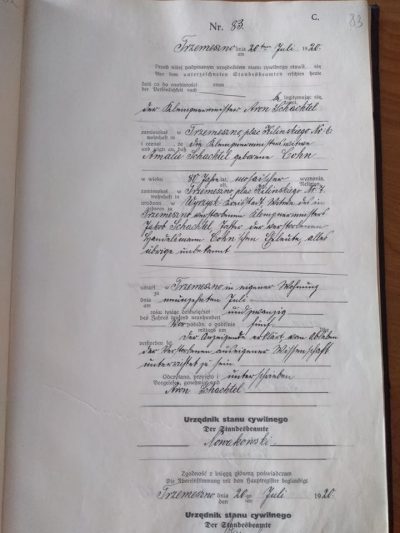 C.
Nr. 83.
83
Trzemeszno dnia am 20ten Juli 1920.
Przed niżej podpisanym urzędnikiem stanu cywilnego stawił się
Vor dem unterzeichneten Standesbeamten erschien heute
dziś co do osobistości
der Persönlichkeit nach
der Klempnermeister Aron Schachtel
zamieszkał w
wohnhaft in
Trzemeszno plac Kilinskiego No 6.
i zeznał że
und zeigte an, daß
die Klempnermeisterwitwe
Amalie Schachtel geborene Cohn
w wieku 80 Jahre lat, mosaischer wyznania,
Religion
zamieszkał w
wohnhaft in
Trzemeszno plac Kilinskiego No 7.
urodzon w
geboren in
Wyrzysk Kreisstadt, Witwe des in
Trzemeszno verstorbenen Klempnermeisters
Jakob Schachtel, Tochter der verstorbenen
Handelsmann Cohn'schen Eheleute, alles
übrige unbekannt
umarł
zu Trzemeszno in eigener Wohnung
dnia
am
neunzehnten Juli
roku tysiąc dziewięćset
des Jahres tausend neunhundert
und zwanzig
Vor południu, o godzinie
mittags um
fünf
verstorben sei
Der Anzeigende erklärt vom Ableben
der Verstorbenen aus eigener Wissenschaft
unterrichtet zu sein
Odczytano, przyjęto i
Vorgelesen, genehmigt und
unterschrieben
Aron Schachtel
Urzędnik stanu cywilnego
Der Standesbeamte
Nowakowski
Zgodność z księgą główną poświadczam
Die Übereinstimmung mit dem Hauptregister beglaubigt
Trzemeszno dnia den 20 Juli 1920
Urzędnik stanu cywilnego
Der Standesbeamte